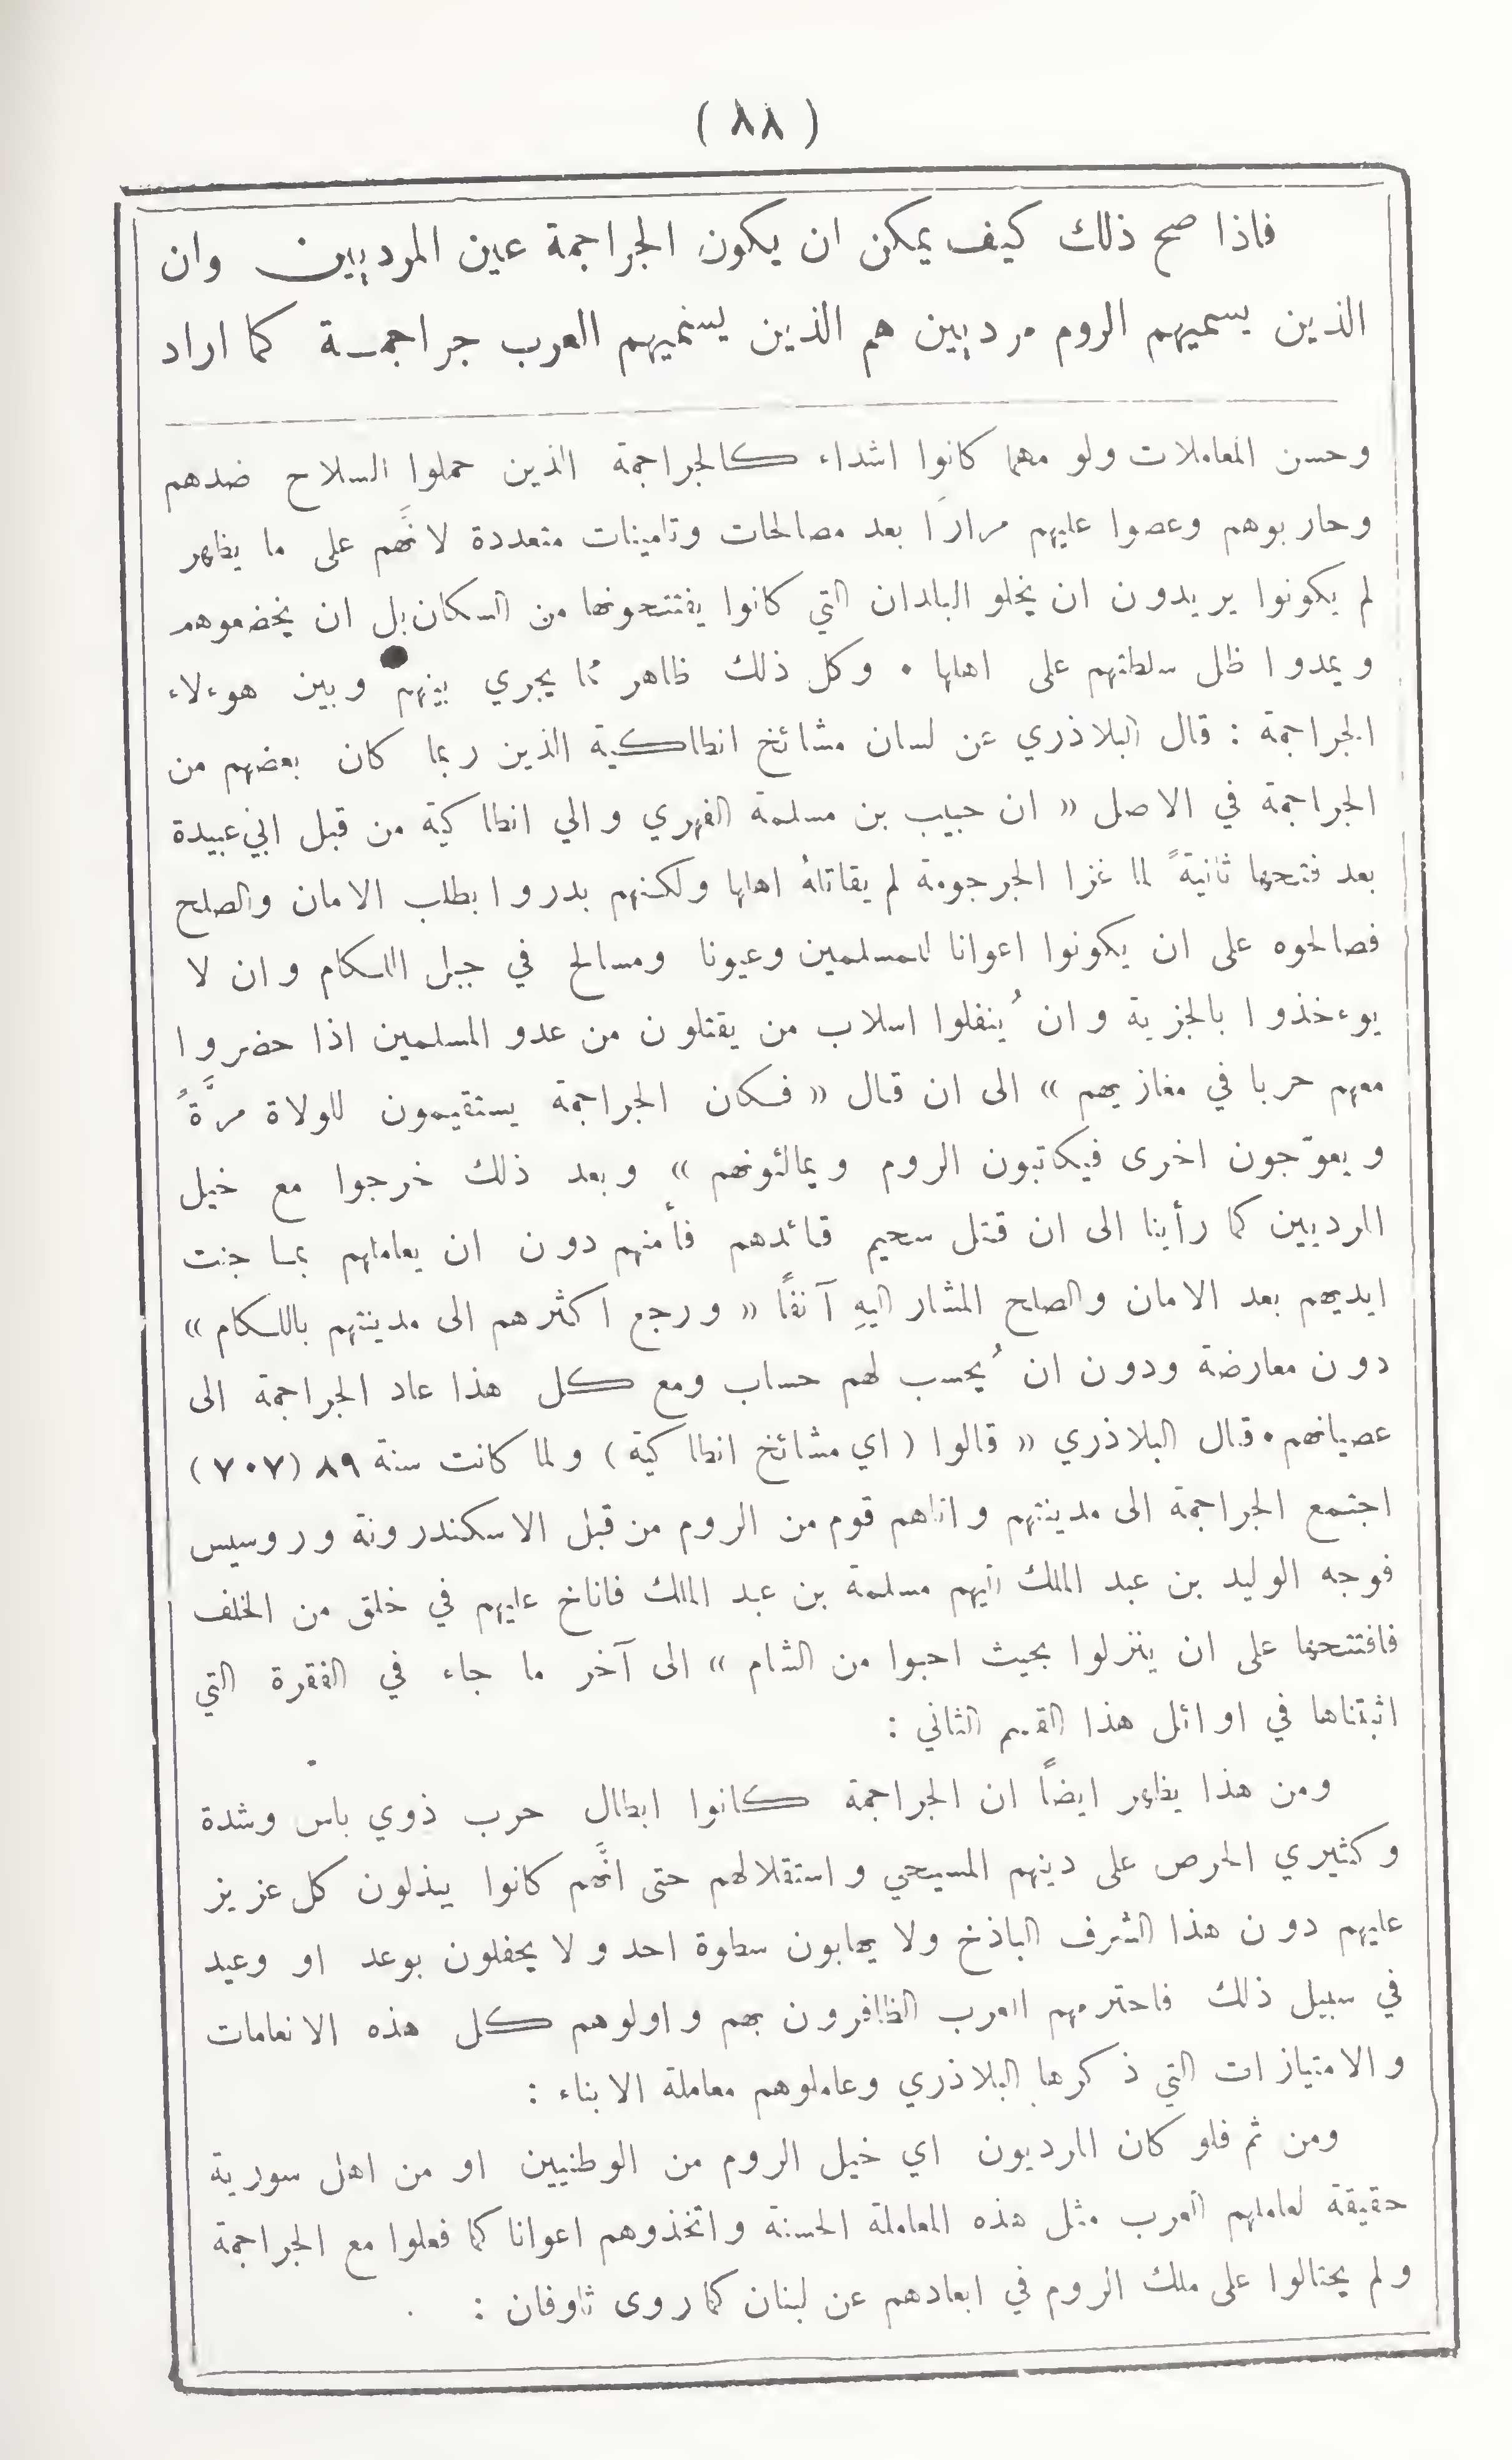 ( ٨٨ )
فاذا صح ذلك كيف يمكن ان يكون الجراجمة عين المرديين وان
الذين يسميهم الروم مرديين هم الذين يسميهم العرب جراجمـة كما اراد
وحسن المعاملات ولو مهما كانوا اشداء كالجراجمة الذين حملوا السلاح ضدهم
وحاربوهم وعصوا عليهم مرارًا بعد مصالحات وتامينات متعددة لانَّهم على ما يظهر
لم يكونوا يريدون ان يخلو البلدان التي كانوا يفتتحونها من السكان بل ان يخضعوهم
ويمدوا ظل سلطتهم على اهلها . وكل ذلك ظاهر مما يجري بينهم وبين هوءلاء
الجراجمة : قال البلاذري عن لسان مشائخ انطاكية الذين ربما كان بعضهم من
الجراجمة في الاصل « ان حبيب بن مسلمة الفهري والي انطاكية من قبل ابي عبيدة
بعد فتحها ثانيةً لما غزا الجرجومة لم يقاتلهُ اهلها ولكنهم بدروا بطلب الامان والصلح
فصالحوه على ان يكونوا اعوانا للمسلمين وعيونا ومسالح في جبل اللكام وان لا
يوءخذوا بالجزية وان يُنفلوا اسلاب من يقتلون من عدو المسلمين اذا حضروا
معهم حربا في مغازيهم » الى ان قال « فكان الجراجمة يستقيمون للولاة مرَّةً
ويعوّجون اخرى فيكاتبون الروم ويمالئونهم » وبعد ذلك خرجوا مع خيل
المرديين كما رأينا الى ان قتل سحيم قائدهم فأمنهم دون ان يعاملهم بما جنت
ايديهم بعد الامان والصلح المشار اليهِ آنفًا « ورجع اكثرهم الى مدينتهم باللكام »
دون معارضة ودون ان يُحسب لهم حساب ومع كل هذا عاد الجراجمة الى
عصيانهم . قال البلاذري « قالوا ( اي مشائخ انطاكية ) ولما كانت سنة ٨٩ (٧٠٧)
اجتمع الجراجمة الى مدينتهم واتاهم قوم من الروم من قبل الاسكندرونة وروسيس
فوجه الوليد بن عبد الملك اليهم مسلمة بن عبد الملك فاناخ عليهم في خلق من الخلف
فافتتحها على ان ينزلوا بحيث احبوا من الشام » الى آخر ما جاء في الفقرة التي
اثبتناها في اوائل هذا القسم الثاني :
ومن هذا يظهر ايضاً ان الجراجمة كانوا ابطال حرب ذوي باس وشدة
وكثيري الحرص على دينهم المسيحي واستقلالهم حتى انَّهم كانوا يبذلون كل عزيز
عليهم دون هذا الشرف الباذخ ولا يهابون سطوة احد ولا يحفلون بوعد او وعيد
في سبيل ذلك فاحترمهم العرب الظافرون بهم واولوهم كل هذه الانعامات
والامتيازات التي ذكرها البلاذري وعاملوهم معاملة الابناء :
ومن ثم فلو كان المرديون اي خيل الروم من الوطنيين او من اهل سورية
حقيقة لعاملهم العرب مثل هذه المعاملة الحسنة واتخذوهم اعوانا كما فعلوا مع الجراجمة
ولم يحتالوا على ملك الروم في ابعادهم عن لبنان كما روى ثاوفان :